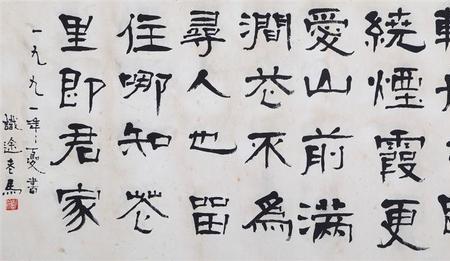 繞煙霞更
愛山前满
澗花不為
尋人也留
住哪知花
里即君家
一九九一年夏書
識途老馬